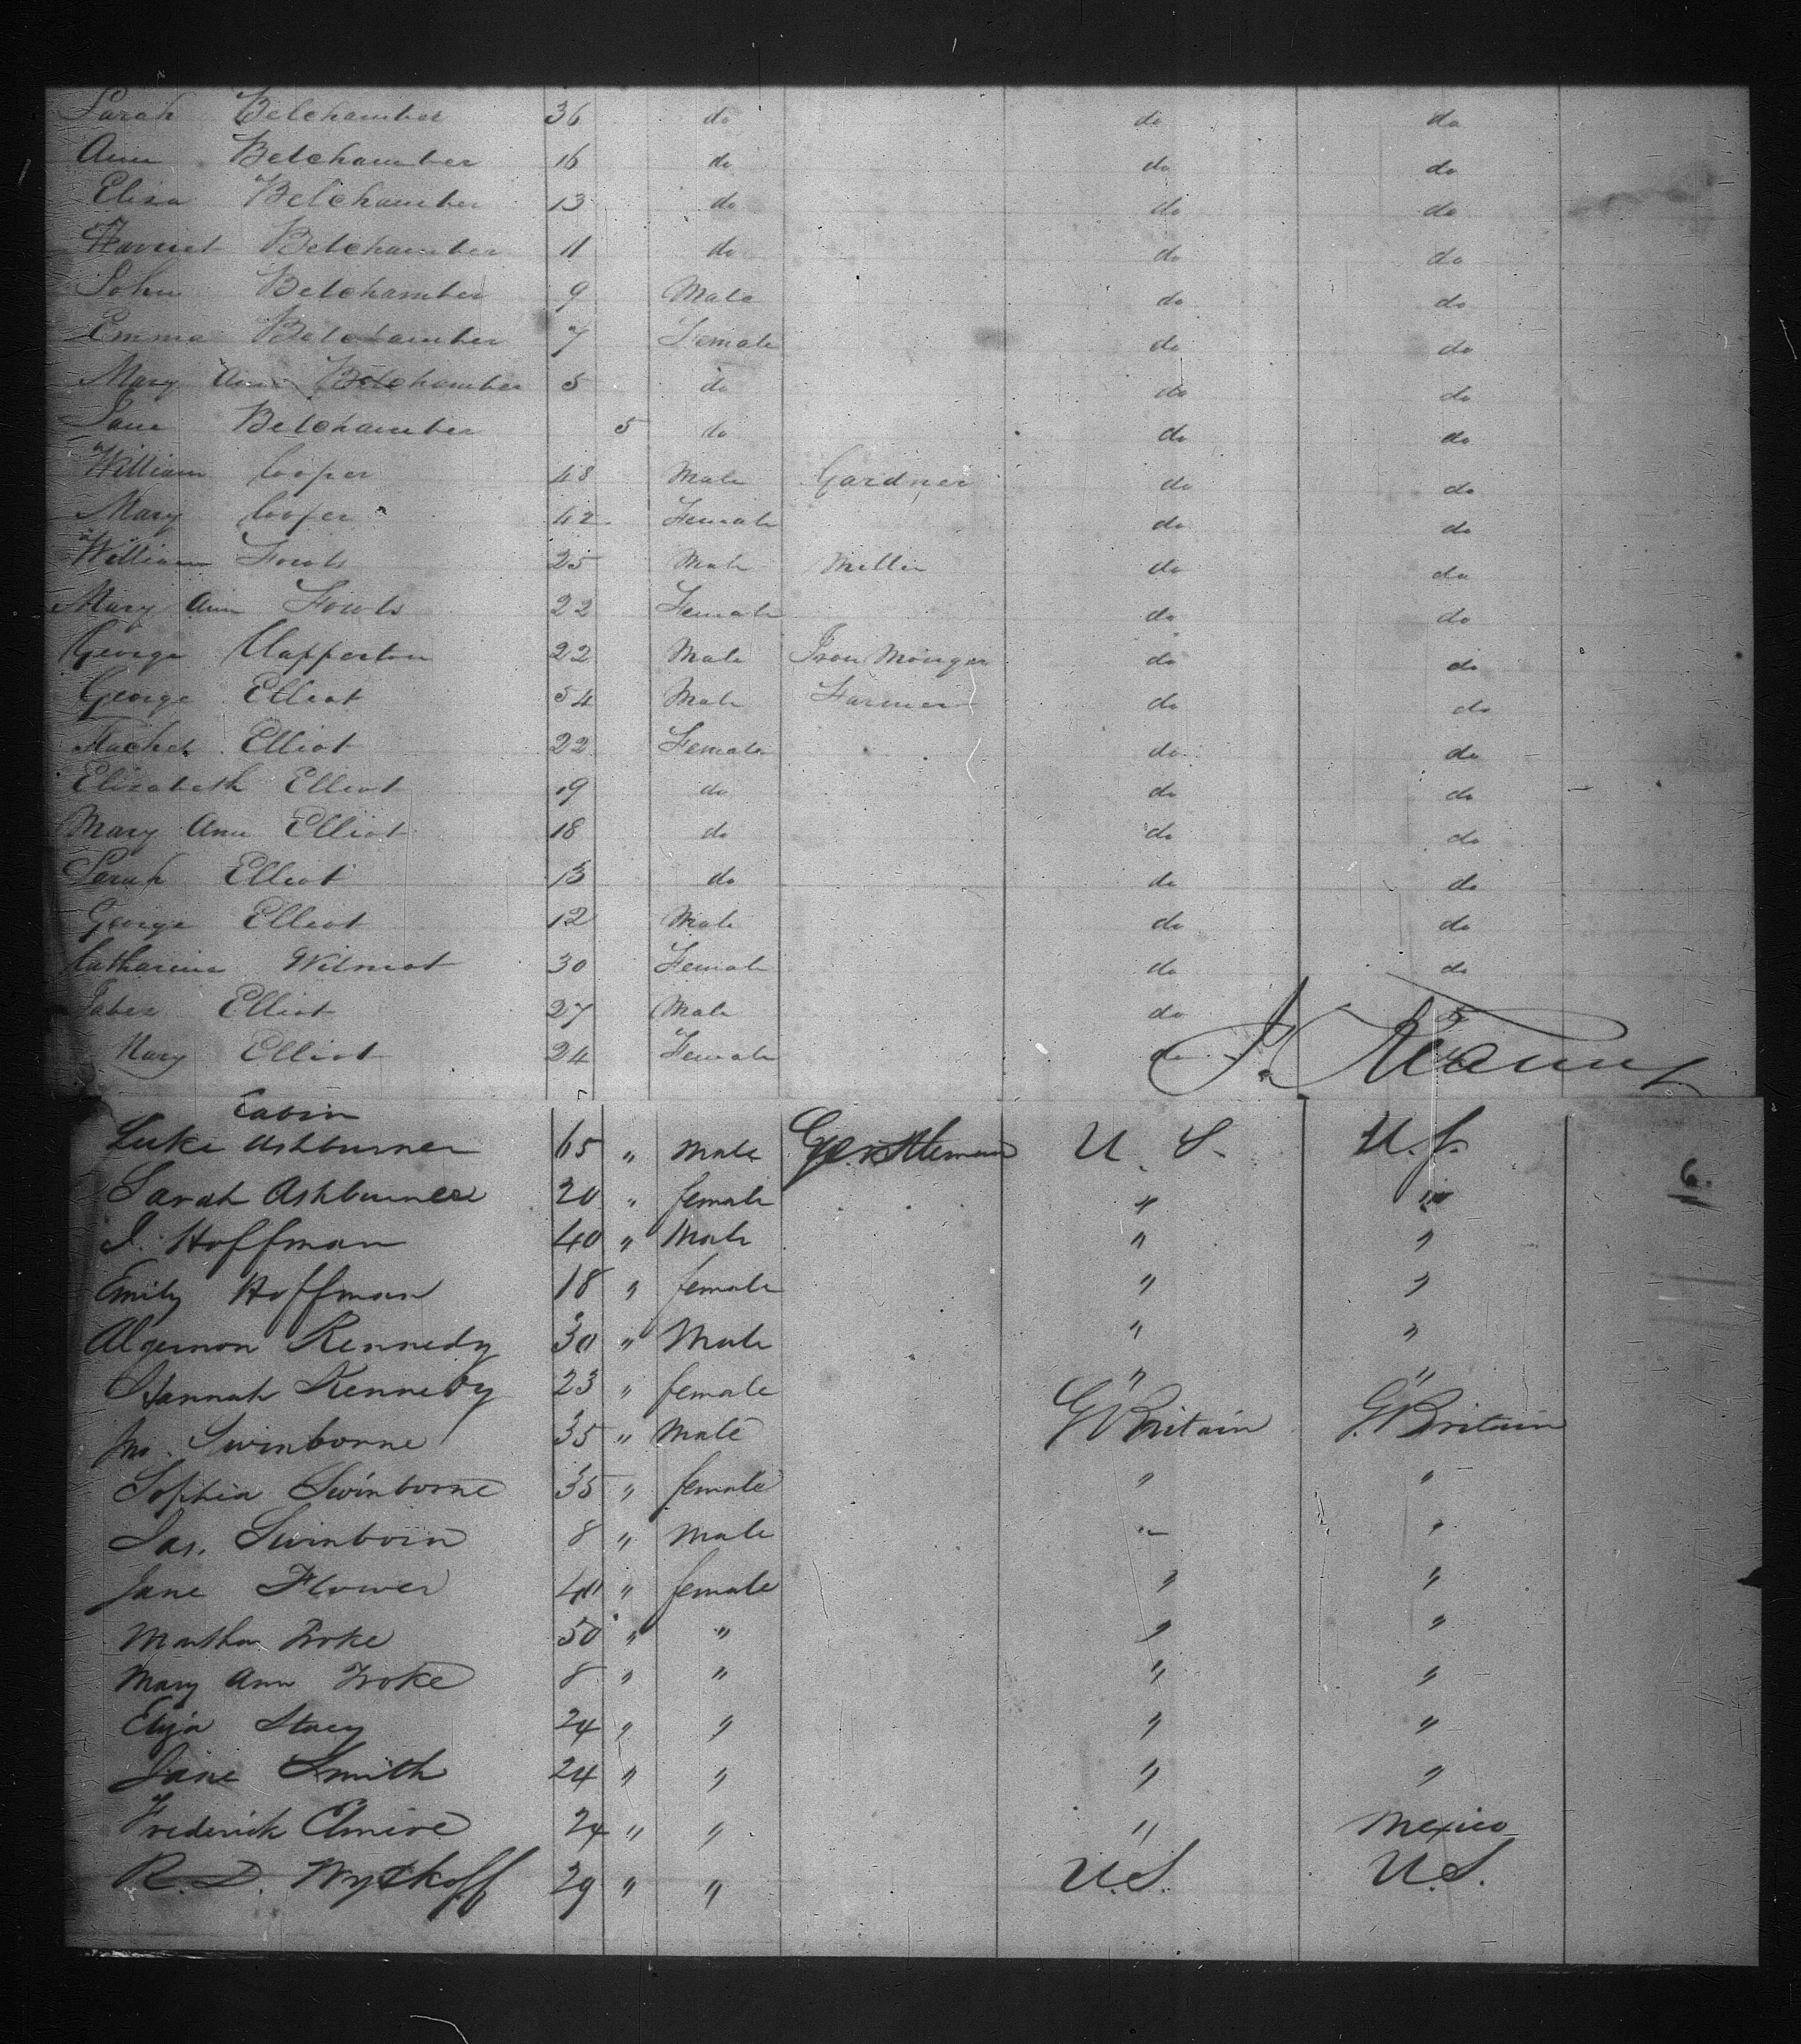 Sarah Belchamber 36 do do do
Ann Belchamber 16 do do do
Eliza Belchamber 13 do do do
Harriet Belchamber 11 do do do
John Belchamber 9 Male do do
Emma Belchamber 7 Female do do
Mary Ann Belchamber 5 do do do
Jane Belchamber 5 do do do
William Cooper 48 Male Gardner do do
Mary Cooper 42 Female do do
William Fowls 25 Male Miller do do
Mary Ann Fowls 22 Female do do
George Clapperton 22 Male Iron Monger do do
George Elliot 54 Male Farmer do do
Rachel Elliot 22 Female do do
Elizabeth Elliot 19 do do do
Mary Ann Elliot 18 do do do
Sarah Elliot 13 do do do
George Elliot 12 Male do do
Catharine Wilmot 30 Female do do
Jabez Elliot 27 Male do do
Mary Elliot 24 Female do
J.
Cabin
Luke Ashburner 65 " Male Gentleman U. S. U.S.
Sarah Ashburner 20 " female " "
6.
J. Hoffman 40 " Male " "
Emily Hoffman 18 " female " "
Algernon Kennedy 30 " Male " "
Hannah Kennedy 23 " female " "
Jno. Swinborne 35 " Male G Britain G. Britain
Sophia Swinborne 35 " female " "
Jas. Swinborn 8 " Male " "
Jane Flower 40 " female " "
Martha Troke 50 " " " "
Mary Ann Troke 8 " " " "
Eliza Stacy 24 " " " "
Jane Smith 24 " " " "
Frederick 24 " " " Mexico
R. D. Wyckoff 29 " " U.S. U.S.